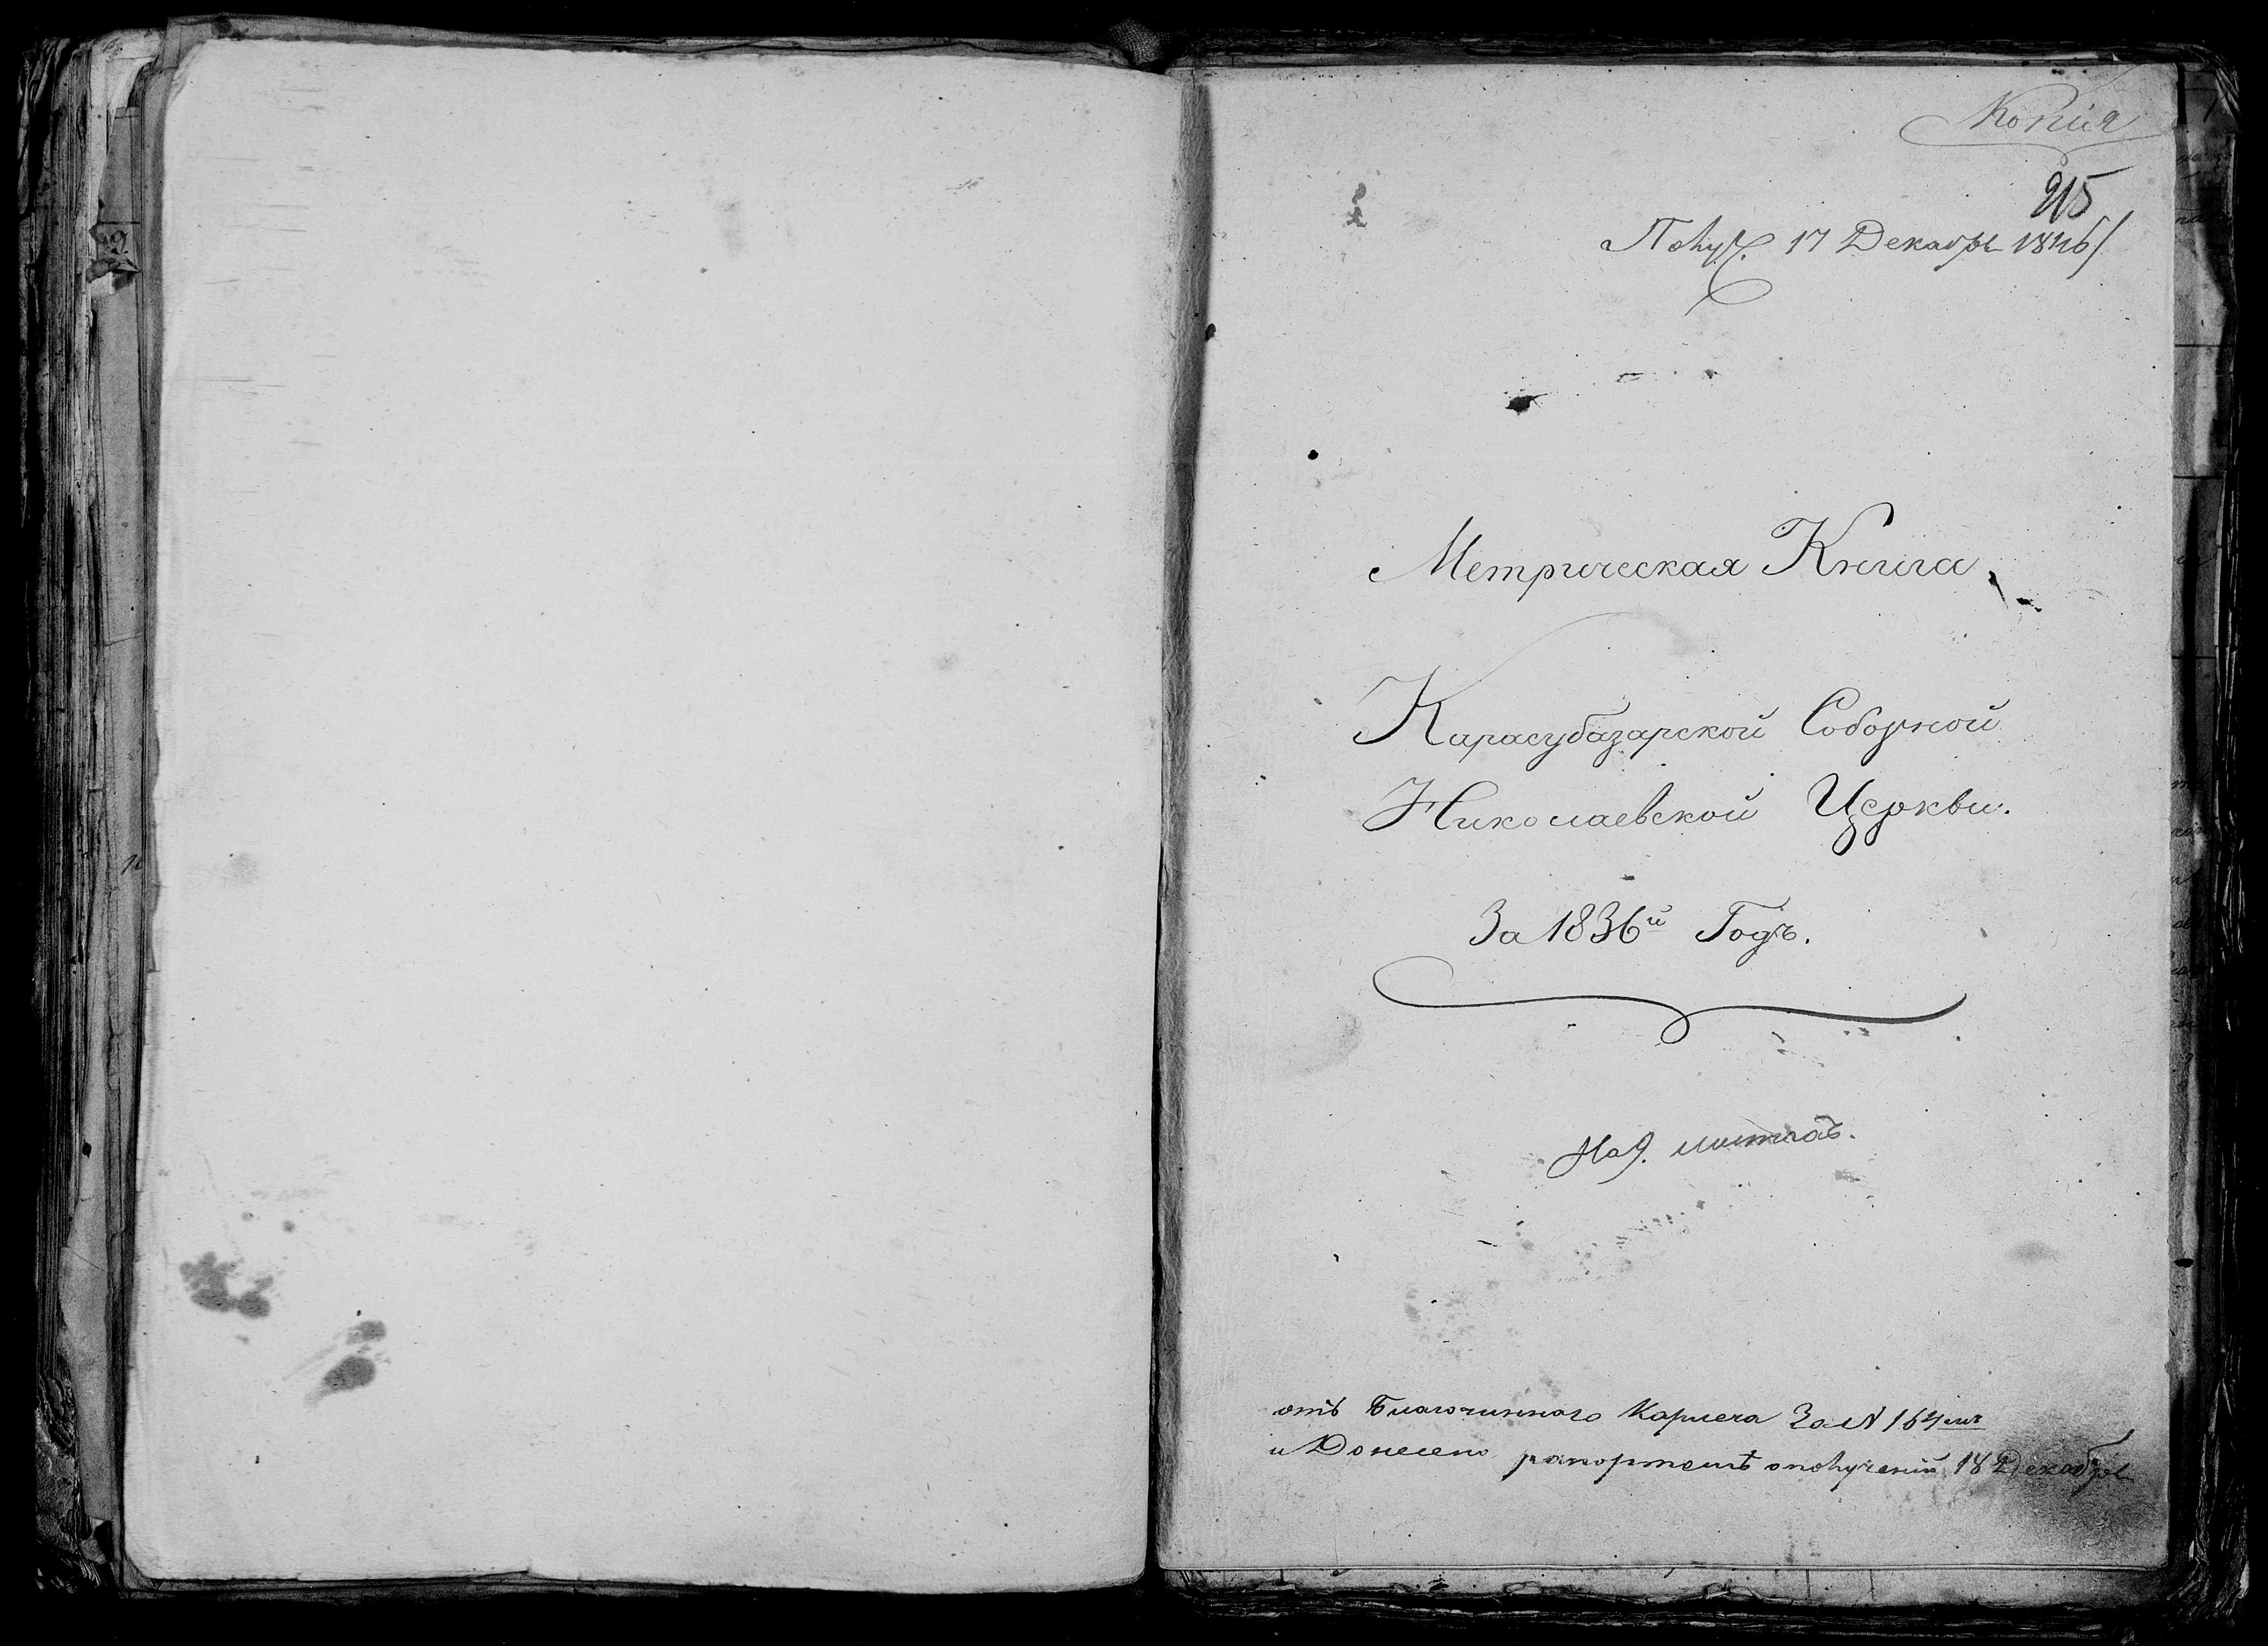 Копія
215
Получ. 17 Декабрь 1846/
Метрическая Книга
Карасубазарской Соборной
Николаевской Церкви.
За 1836й Годъ.
На 9. листахъ.
отъ Благочиннаго За № 164мъ
и Донесено рапортомъ о полученіи 18 Декабрь